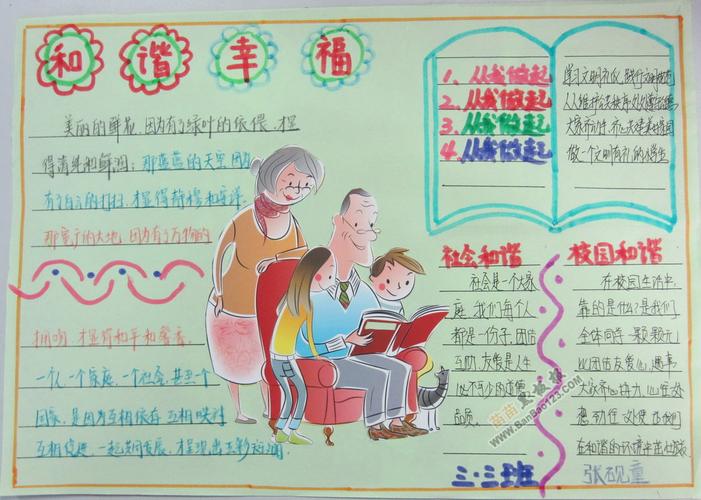 和谐幸福
美丽的鲜花,因为有了绿叶的依偎,才显
得清纯和鲜润;那蓝蓝的天空,因为
有了白云的打扮,才显得静穆和安详。
那宽广的大地,因为有了万物的
拥吻,才显得和平和馨香。
一个人,一个家庭,一个社会,甚至一个
国家,是因为互相依存,互相映衬
互相促进,一起共同发展,才呈现出五彩斑斓
1、从我做起
2、从我做起
3、从我做起
4、从我做起
学习文明礼仪,践行文明规范
从维护公共秩序
大家
做一个文明有礼的小学生
社会和谐
社会是一个大家
庭,我们每个人
都是一份子,团结
互助,友爱是人生
必不可少的道德
品质。
校园和谐
在校园生活中,
靠的是什么?是我们
全体同学一颗颗
团结友爱心,遇事
大家齐心协力,心往一处
想,劲往一处使,让我们
在和谐的环境中茁壮成长
三·三班
张砚童
苗苗黑板报
www.BanBao123.com